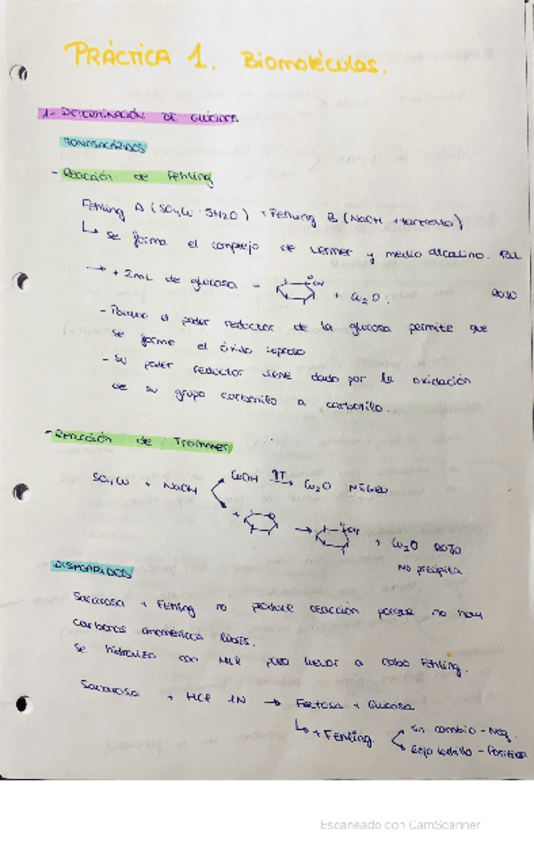 PRÁCTICA 1. Biomoléculas.
1- DETERMINACIÓN DE GLÚCIDOS
MONOSACÁRIDOS
- Reacción de Fehling
Fehling A (SO4Cu · 5H2O) + Fehling B (NaOH + tartrato)
↳ se forma el complejo de y medio alcalino.
→ + 2mL de glucosa - OH + Cu2O.
ROJO
- Porque el poder reductor de la glucosa permite que
se forme el óxido cuproso
- Su poder reductor viene dado por la oxidación
de su grupo carbonilo a carboxilo.
- Reacción de Trommer
SO4Cu + NaOH CuOH ↑T → Cu2O NEGRO
+ → OH + Cu2O ROJO
NO precipita.
DISACÁRIDOS
Sacarosa + Fehling no produce reacción porque no hay
carbonos anoméricos libres.
Se hidroliza con HCl para llevar a cabo Fehling.
Sacarosa + HCl 1N → Fructosa + Glucosa
↳ + Fehling. sin cambio - Neg.
Rojo ladrillo - Positiva
Escaneado con CamScanner